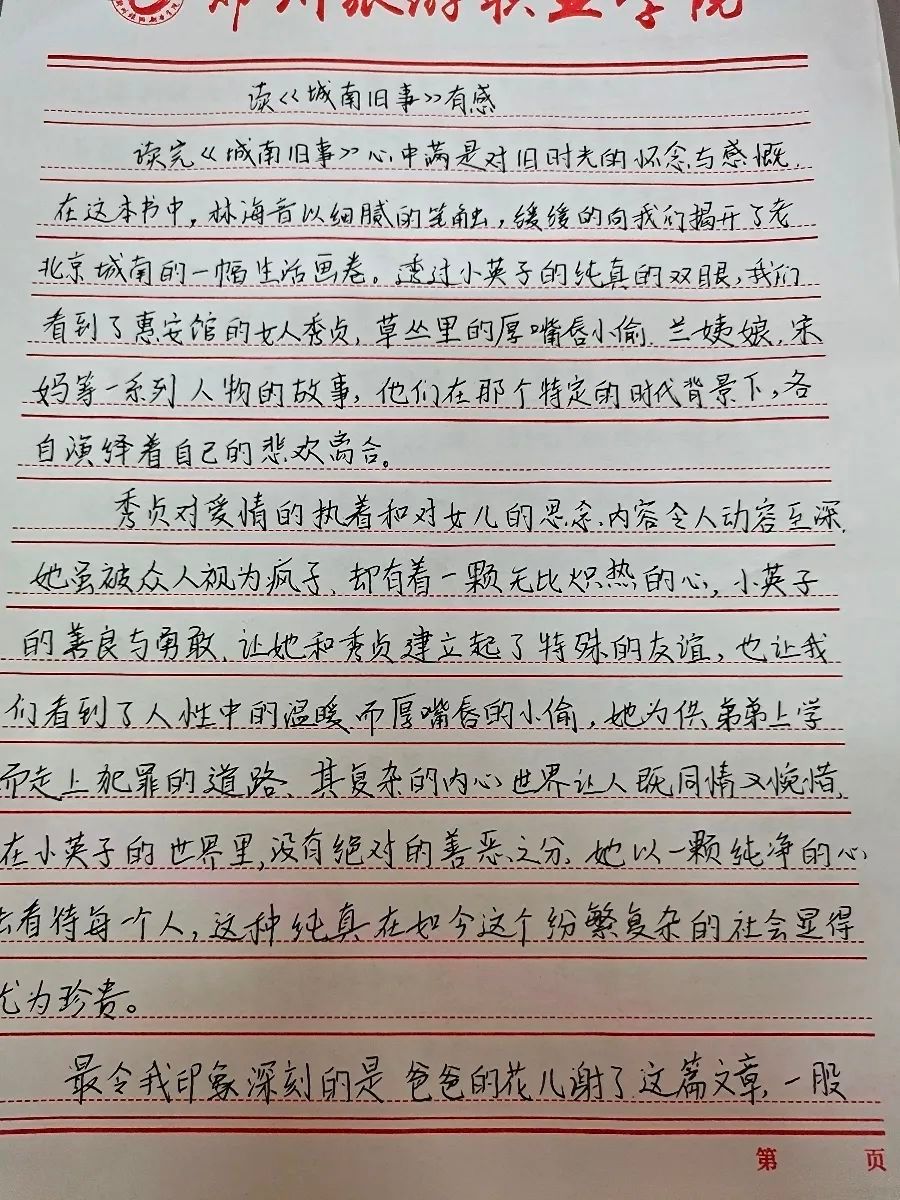 郑州旅游职业学院
读《城南旧事》有感
读完《城南旧事》心中满是对旧时光的怀念与感慨.
在这本书中,林海音以细腻的笔触,缓缓的向我们揭开了老
北京城南的一幅生活画卷。透过小英子的纯真的双眼,我们
看到了惠安馆的女人秀贞,草丛里的厚嘴唇小偷.兰姨娘.宋
妈等一系列人物的故事,他们在那个特定的时代背景下,各
自演绎着自己的悲欢离合。
秀贞对爱情的执着和对女儿的思念.内容令人动容至深.
她虽被众人视为疯子、却有着一颗无比炽热的心,小英子
的善良与勇敢、让她和秀贞建立起了特殊的友谊,也让我
们看到了人性中的温暖而厚嘴唇的小偷,她为供弟弟上学
而走上犯罪的道路、其复杂的内心世界让人既同情又惋惜.
在小英子的世界里,没有绝对的善恶之分.她以一颗纯净的心
去看待每个人,这种纯真在如今这个纷繁复杂的社会显得
尤为珍贵。
最令我印象深刻的是爸爸的花儿谢了这篇文章,一股
第 页